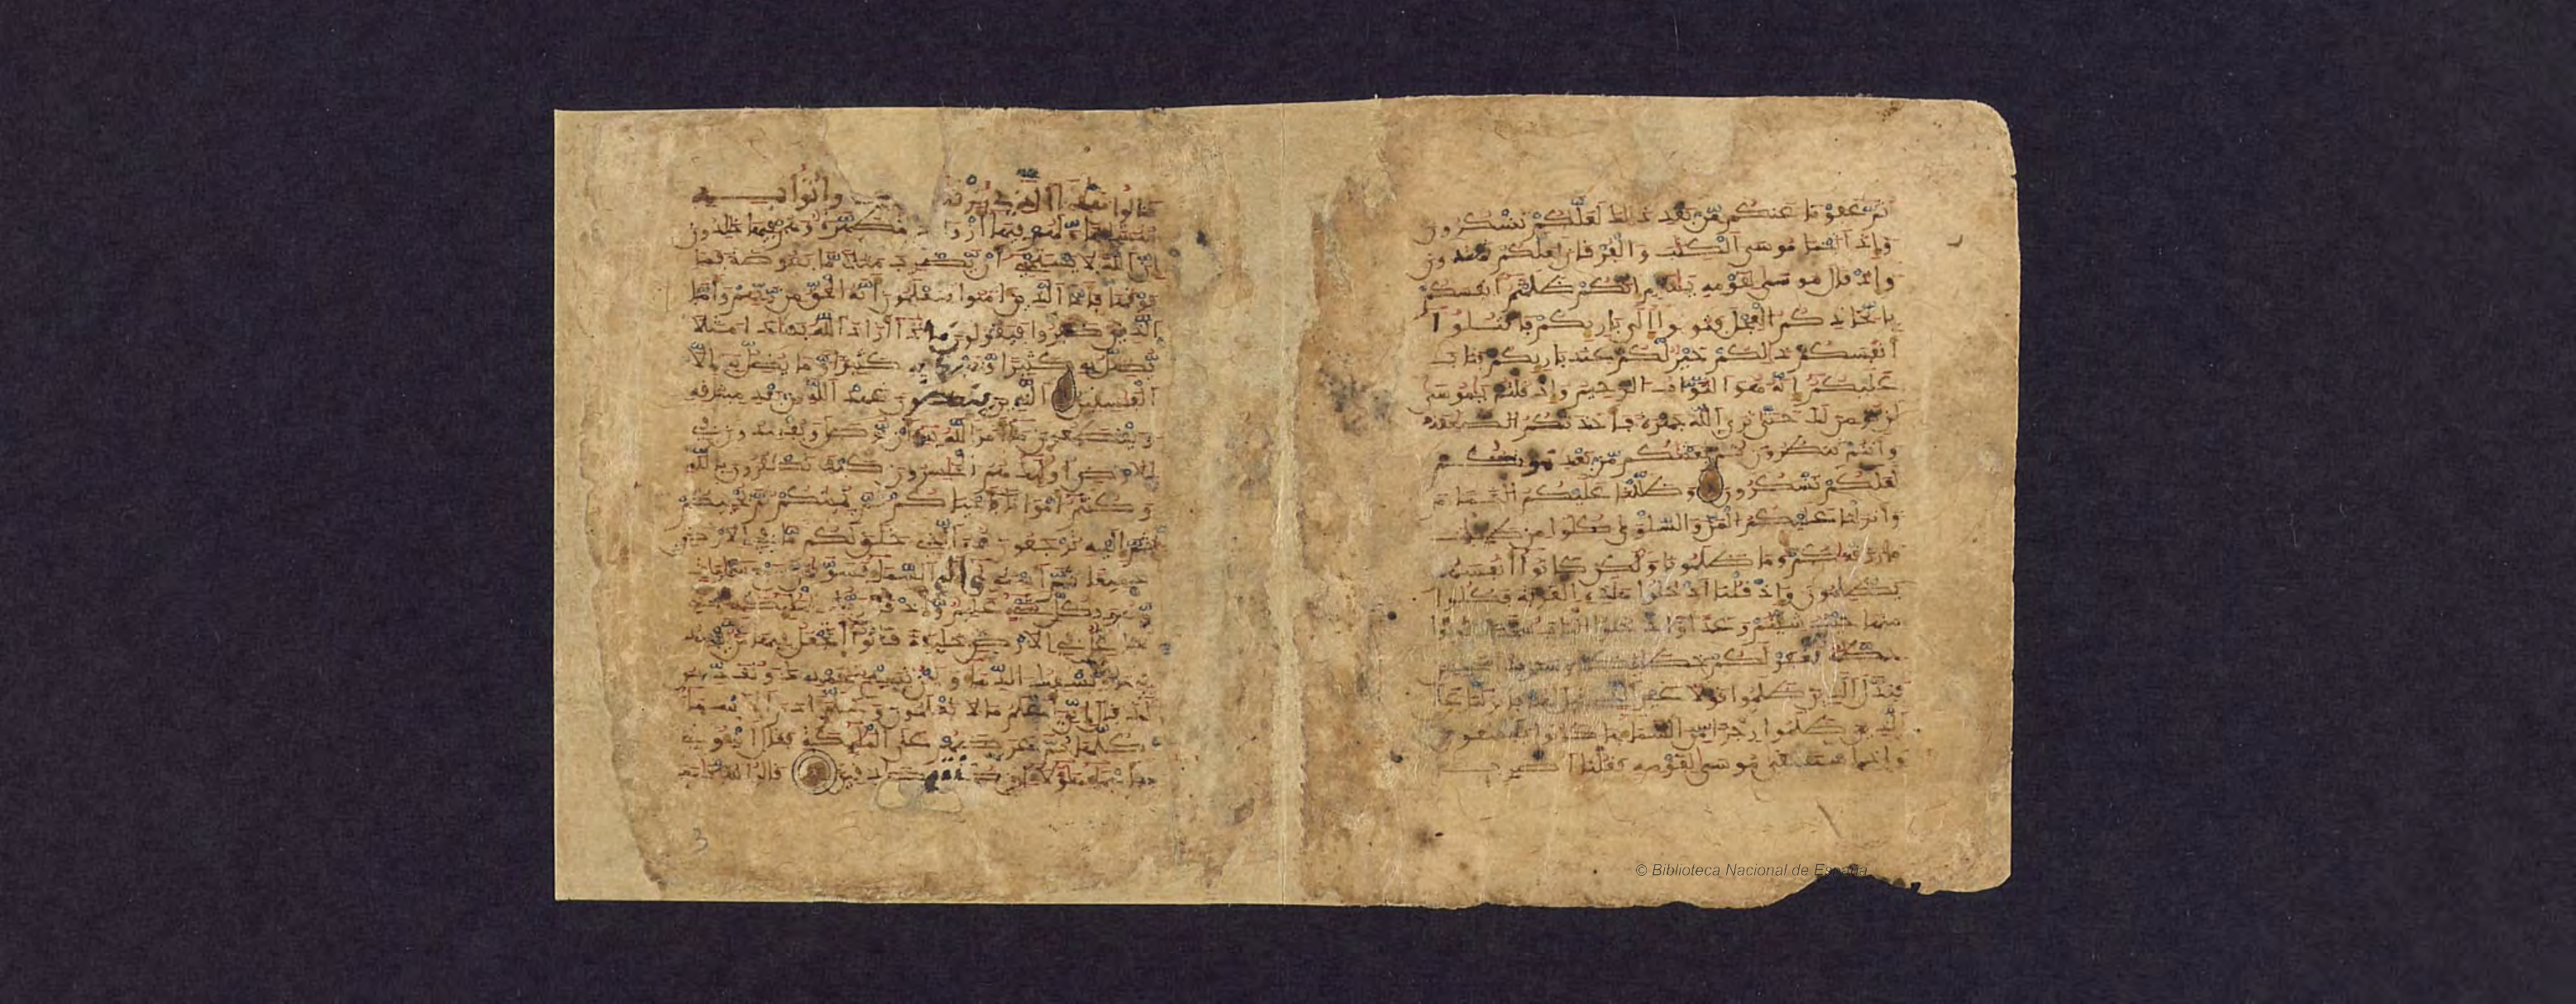 ثم عفونا عنكم من بعد ذلك لعلكم تشكرون
وإذ اتينا موسى الكتب والفرقان لعلكم تهتدون
وإذ قال موسى لقومه يقوم إنكم ظلمتم أنفسكم
باتخاذكم العجل فتوبوا إلى باريكم فاقتلوا
أنفسكم ذلكم خير لكم عند باريكم فتاب
عليكم إنه هو التواب الرحيم وإذ قلتم يموسى
لن نومن لك حتى نرى الله جهرة فأخذتكم الصعقة
وأنتم تنظرون ثم بعثنكم من بعد موتكم
لعلكم تشكرون وظللنا عليكم الغمام
وأنزلنا عليكم المن والسلوى كلوا من طيبت
ما رزقنكم وما ظلمونا ولكن كانوا أنفسهم
يظلمون وإذ قلنا ادخلوا هذه القرية فكلوا
منها حيث شئتم رغدا وادخلوا الباب سجدا وقولوا
حطة نغفر لكم خطيكم وسنزيد المحسنين
فبدل الذين ظلموا قولا غير الذي قيل لهم فأنزلنا على
الذين ظلموا رجزا من السماء بما كانوا يفسقون
وإذ استسقى موسى لقومه فقلنا اضرب
قالوا هذا الذي رزقنا وأتوا به
متشبها ولهم فيها أزوج مطهرة وهم فيها خلدون
إن الله لا يستحي أن يضرب مثلا ما بعوضة فما
فوقها فأما الذين امنوا فيعلمون أنه الحق من ربهم وأما
الذين كفروا فيقولون ماذا أراد الله بهذا مثلا
يضل به كثيرا ويهدي به كثيرا وما يضل به إلا
الفسقين الذين ينقضون عهد الله من بعد ميثقه
ويقطعون ما أمر الله به أن يوصل ويفسدون في
الأرض أولئك هم الخسرون كيف تكفرون بالله
وكنتم أموتا فأحيكم ثم يميتكم ثم يحييكم
ثم إليه ترجعون هو الذي خلق لكم ما في الأرض
جميعا ثم استوى إلى السماء فسويهن سبع سموت
وهو بكل شيء عليم وإذ قال ربك للملئكة إني
جاعل في الأرض خليفة قالوا أتجعل فيها من يفسد
فيها ويسفك الدماء ونحن نسبح بحمدك ونقدس
لك قال إني أعلم ما لا تعلمون وعلم ادم الأسماء
كلها ثم عرضهم على الملئكة فقال أنبئوني
بأسماء هؤلاء إن كنتم صدقين قالوا سبحنك
3
© Biblioteca Nacional de España